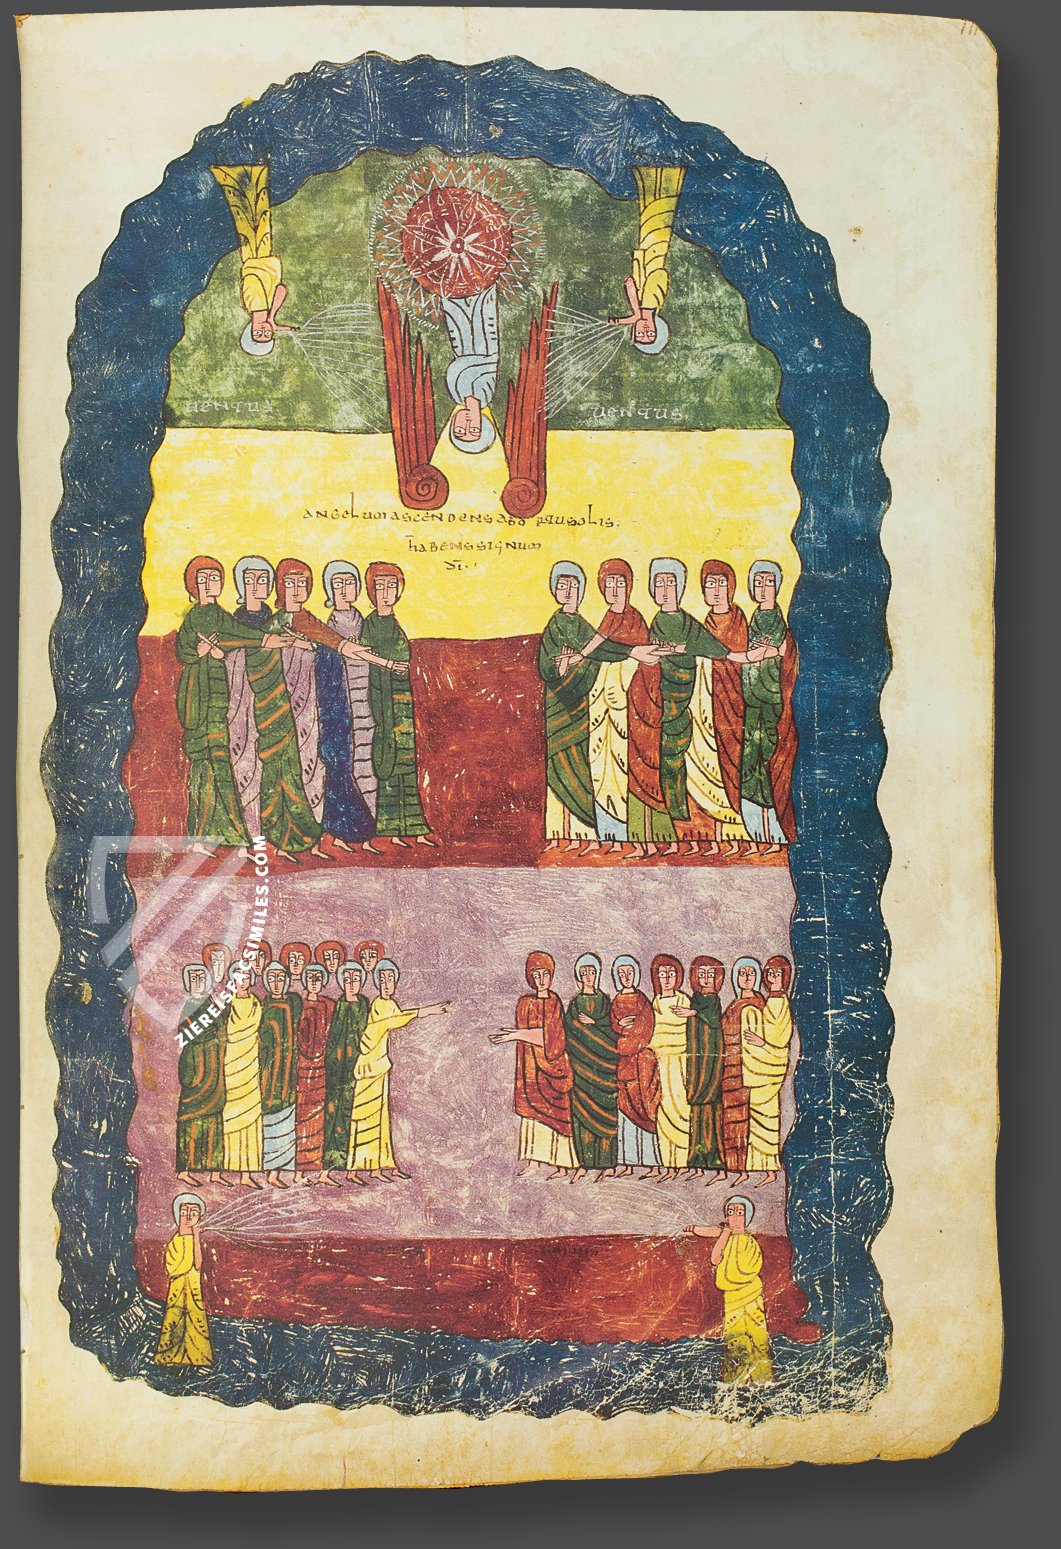 uentus
uentus
angelum ascendens abo rtu solis:
habens signum
dī.
ZIEREISFACSIMILES.COM